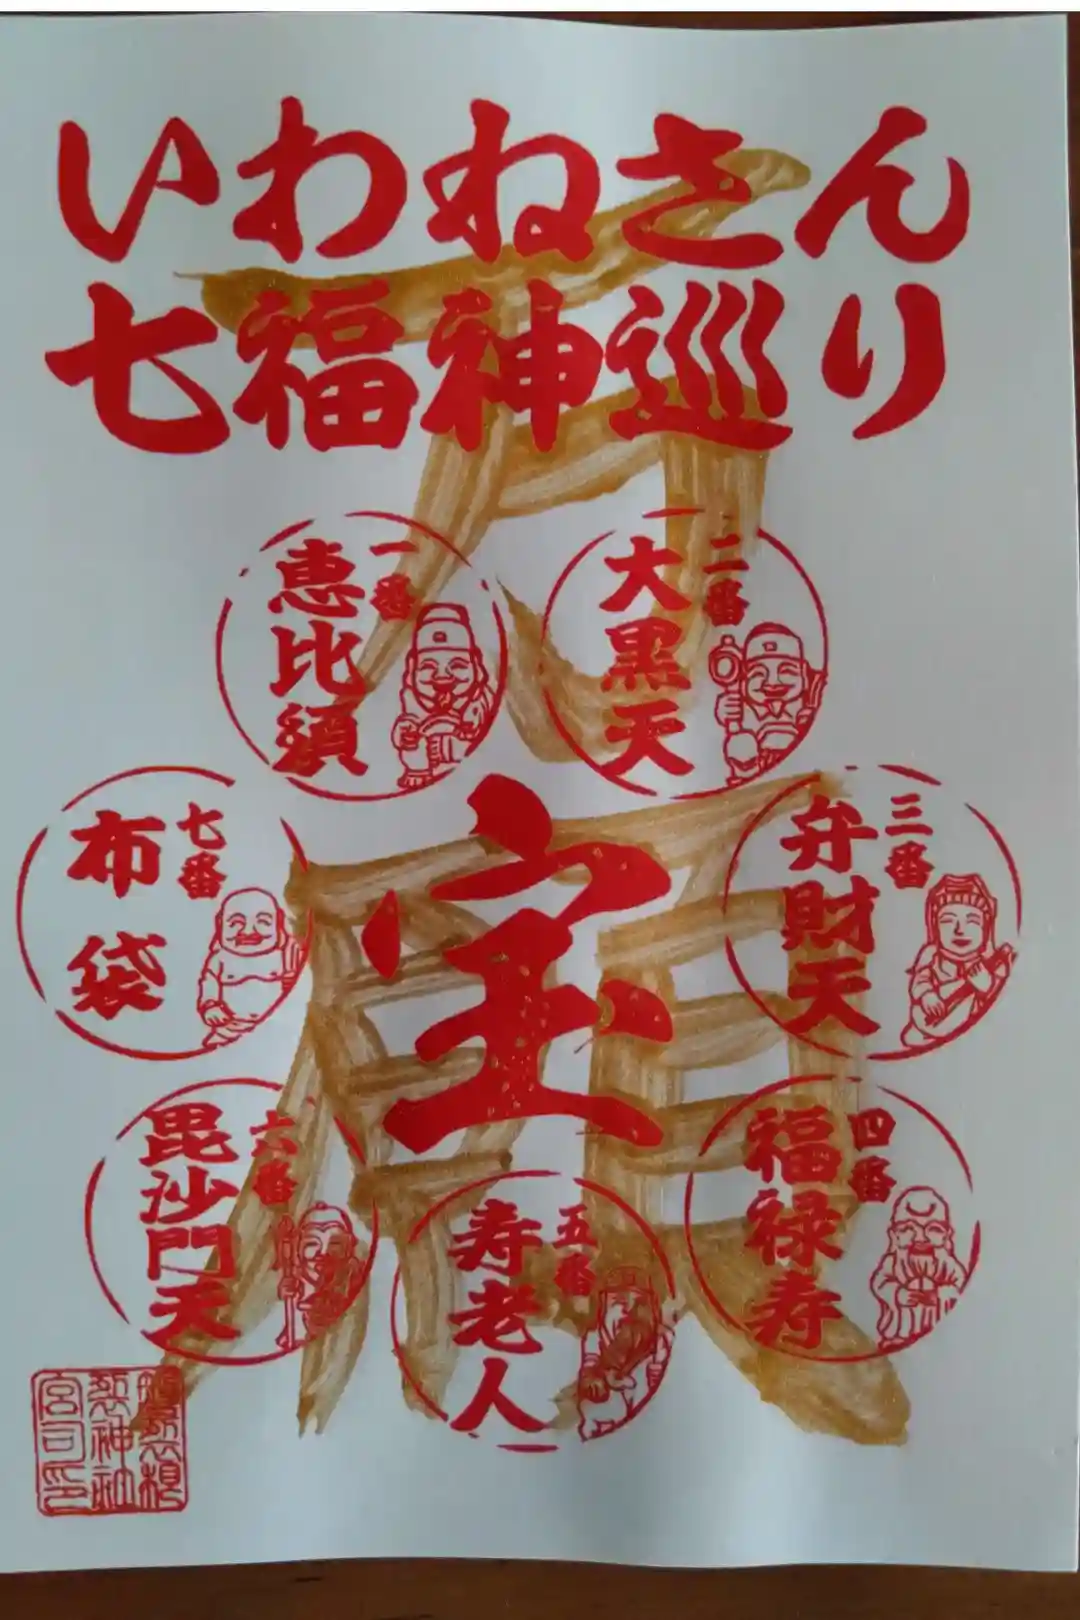 いわねさん
七福神巡り
一番
恵比須
二番
大黒天
三番
弁財天
四番
福禄寿
五番
寿老人
六番
毘沙門天
七番
布袋
宝
満願
宮司印